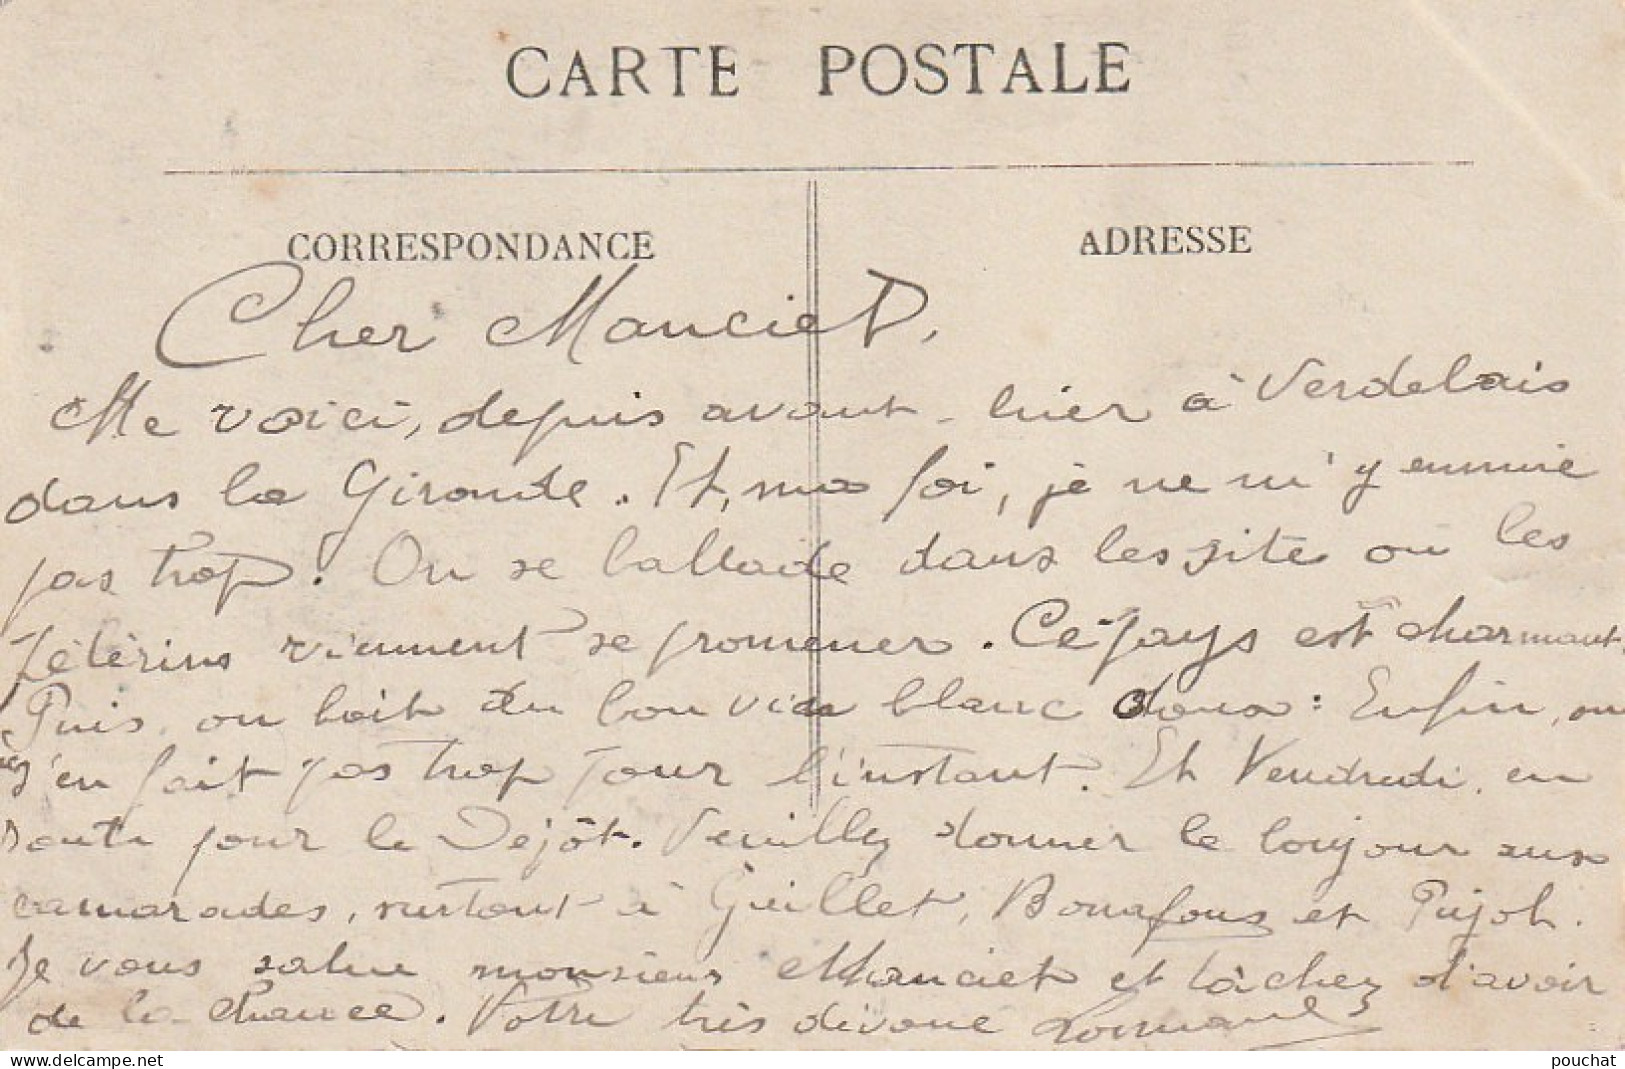 CARTE POSTALE
CORRESPONDANCE
ADRESSE
Cher Manciet,
Me voici, depuis avant-hier à Verdelais
dans la Gironde. Et, ma foi, je ne m'y ennuie
pas trop. On se ballade dans les site ou les
pélérins viennent se promener. Ce pays est charmant.
Puis, on boit du bon vin blanc doux. Enfin, on
s'en fait pas trop pour l'instant. Et Vendredi, en
route pour le Dépôt. Veuillez donner le bonjour aux
camarades, surtout à Guillet, Bonafous et Pujol.
Je vous salue monsieur Manciet et tâchez d'avoir
de la chance. Votre très dévoué
pouchat
www.delcampe.net